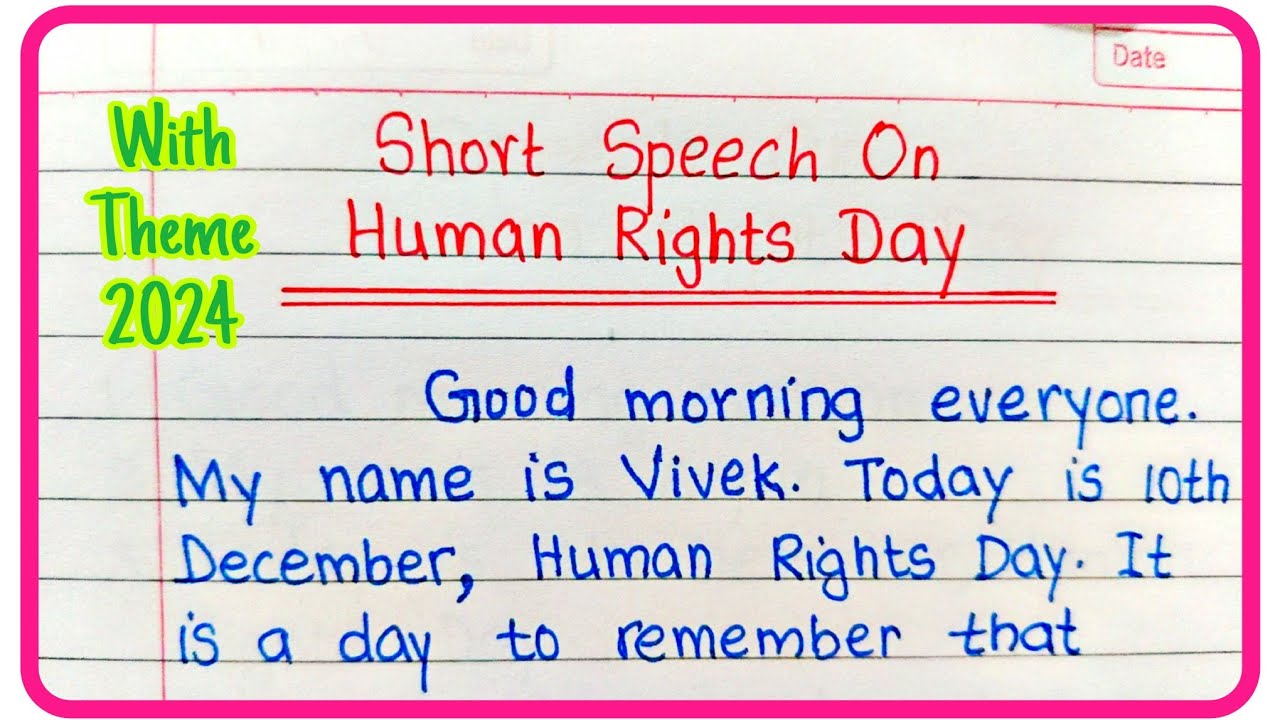 Date
With
Theme
2024
Short Speech On
Human Rights Day
Good morning everyone.
My name is Vivek. Today is 10th
December, Human Rights Day. It
is a day to remember that